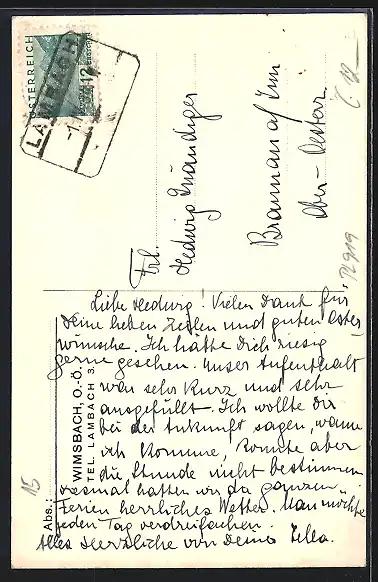 ÖSTERREICH
12
LAMBACH
Frl.
Hedwig
Braunau a/ Inn
Ober-Oesterr.
Liebe Hedwig! Vielen Dank für
Deine lieben Zeilen und guten Oster-
wünsche. Ich hätte Dich riesig
gerne gesehen. Unser Aufenthalt
war sehr kurz und sehr
ausgefüllt. Ich wollte Dir
bei der Ankunft sagen, wann
ich komme, konnte aber
die Stunde nicht bestimmen
Diesmal hatten wir die ganzen
Ferien herrliches Wetter. Man möchte
jeden Tag verdreifachen.
Alles Herzliche von Deiner
Abs.:
WIMSBACH, O.-Ö.
TEL. LAMBACH 3.
15